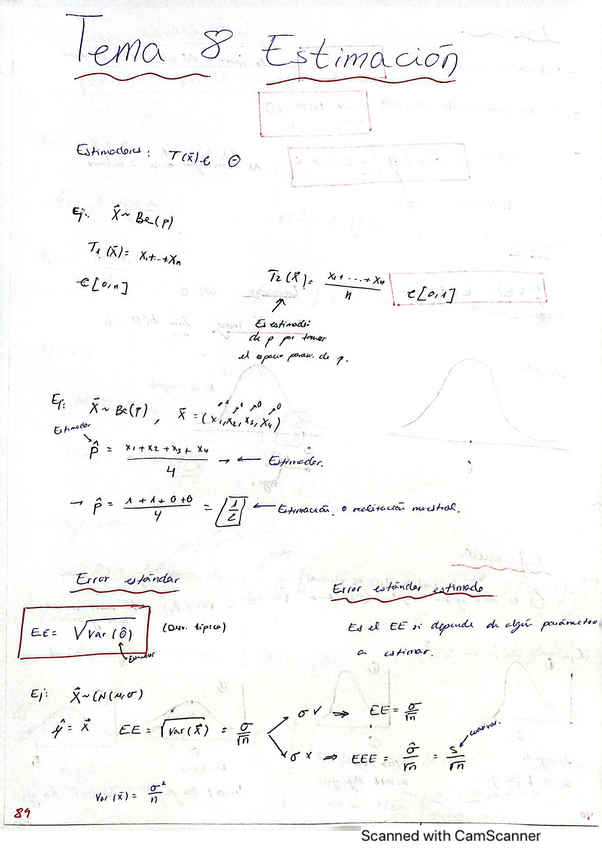 Tema 8. Estimación
Estimadores: T(x⃗) ∈ Θ
Ej: X⃗ ~ Be(p)
T₁(x⃗) = x₁+...+xₙ
∈ [0,n]
T₂(x⃗) = (x₁+...+xₙ)/n ∈ [0,1]
↑
Es estimador
de p por tomar
el espacio param. de p.
Ej: X⃗ ~ Be(p), X⃗ = (x₁, x₂, x₃, x₄) ↗1 ↗1 ↗0 ↗0
Estimador
p̂ = (x₁+x₂+x₃+x₄)/4 → ← Estimador.
→ p̂ = (1+1+0+0)/4 = 1/2 ← Estimación o realización muestral.
Error estándar
EE = √var(θ̂) (Desv. típica)
Estimador
Error estándar estimado
Es el EE si depende de algún parámetro
a estimar.
Ej: X⃗ ~ (N(μ,σ)
μ̂ = x̄ EE = √var(x̄) = σ/√n
σ ✓ ⇒ EE = σ/√n
σ x ⇒ EEE = σ̂/√n = s/√n
Var(x̄) = σ²/n
89
Scanned with CamScanner